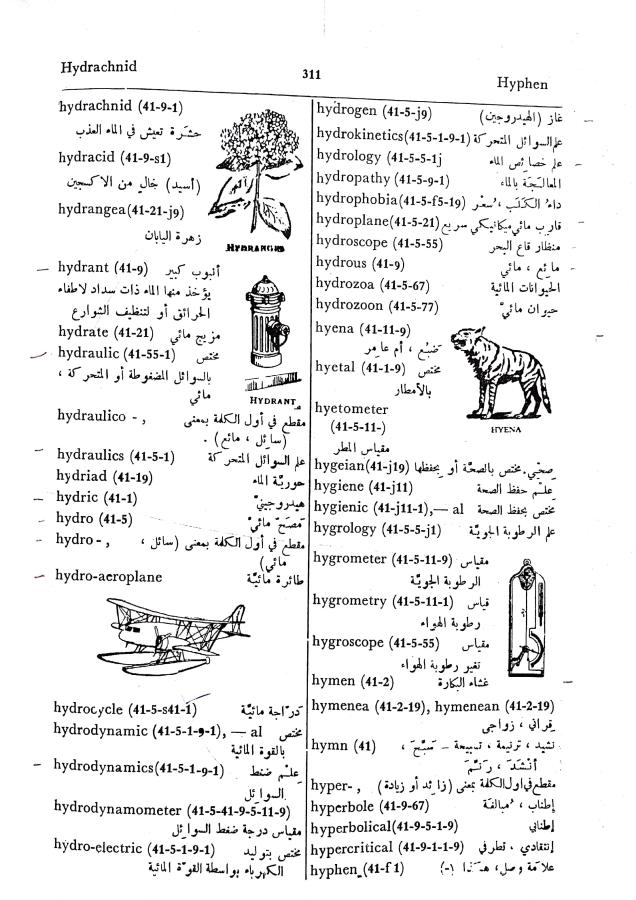 Hydrachnid
311
Hyphen
hydrachnid (41-9-1)
حشرة تعيش في الماء العذب
hydracid (41-9-s1)
(أسيد) خال من الاكسجين
hydrangea(41-21-j9)
زهرة اليابان
HYDRANGEA
hydrant (41-9) أنبوب كبير
يؤخذ منها الماء ذات سداد لاطفاء
الحرائق أو لتنظيف الشوارع
hydrate (41-21) مزيج مائي
hydraulic (41-55-1) مختص
بالسوائل المضغوطة أو المتحركة ،
مائي
HYDRANT
hydraulico - , مقطع في أول الكلمة بمعنى
(سائل ، مائع) .
hydraulics (41-5-1) علم السوائل المتحركة
hydriad (41-19) حورية الماء
hydric (41-1) هيدروجيني
hydro (41-5) مصح مائي
hydro - , مقطع في أول الكلمة بمعنى (سائل ،
مائي)
hydro-aeroplane طائرة مائية
hydrocycle (41-5-s41-1) دراجة مائية
hydrodynamic (41-5-1-9-1), — al مختص
بالقوة المائية
hydrodynamics(41-5-1-9-1) علم ضغط
السوائل
hydrodynamometer (41-5-41-9-5-11-9)
مقياس درجة ضغط السوائل
hydro-electric (41-5-1-9-1) مختص بتوليد
الكهرباء بواسطة القوة المائية
hydrogen (41-5-j9) غاز (الهيدروجين)
hydrokinetics(41-5-1-9-1) علم السوائل المتحركة
hydrology (41-5-5-1j علم خصائص الماء
hydropathy (41-5-9-1) المعالجة بالماء
hydrophobia(41-5-f5-19) داء الكلب ، سعر
hydroplane(41-5-21) قارب مائي ميكانيكي سريع
hydroscope (41-5-55) منظار قاع البحر
hydrous (41-9) مائع ، مائي
hydrozoa (41-5-67) الحيوانات المائية
hydrozoon (41-5-77) حيوان مائي
hyena (41-11-9)
ضبع ، أم عامر
hyetal (41-1-9) مختص
بالأمطار
hyetometer
(41-5-11-)
مقياس المطر
HYENA
hygeian(41-j19) صحي. مختص بالصحة أو يحفظها
hygiene (41-j11) علم حفظ الصحة
hygienic (41-j11-1),— al مختص بحفظ الصحة
hygrology (41-5-5-j1) علم الرطوبة الجوية
hygrometer (41-5-11-9) مقياس
الرطوبة الجوية
hygrometry (41-5-11-1) قياس
رطوبة الهواء
hygroscope (41-5-55) مقياس
تغير رطوبة الهواء
hymen (41-2) غشاء البكارة
hymenea (41-2-19), hymenean (41-2-19)
قراني ، زواجي
hymn (41) نشيد ، ترنيمة ، تسبيحة – سبح ،
أنشد ، رنم
hyper- , مقطع في اول الكلمة بمعنى (زائد أو زيادة)
hyperbole (41-9-67) إطناب ، مبالغة
hyperbolical(41-9-5-1-9) إطنابي
hypercritical (41-9-1-1-9) إنتقادي ، تطرفي
hyphen (41-f1) علامة وصل، هكذا (-)